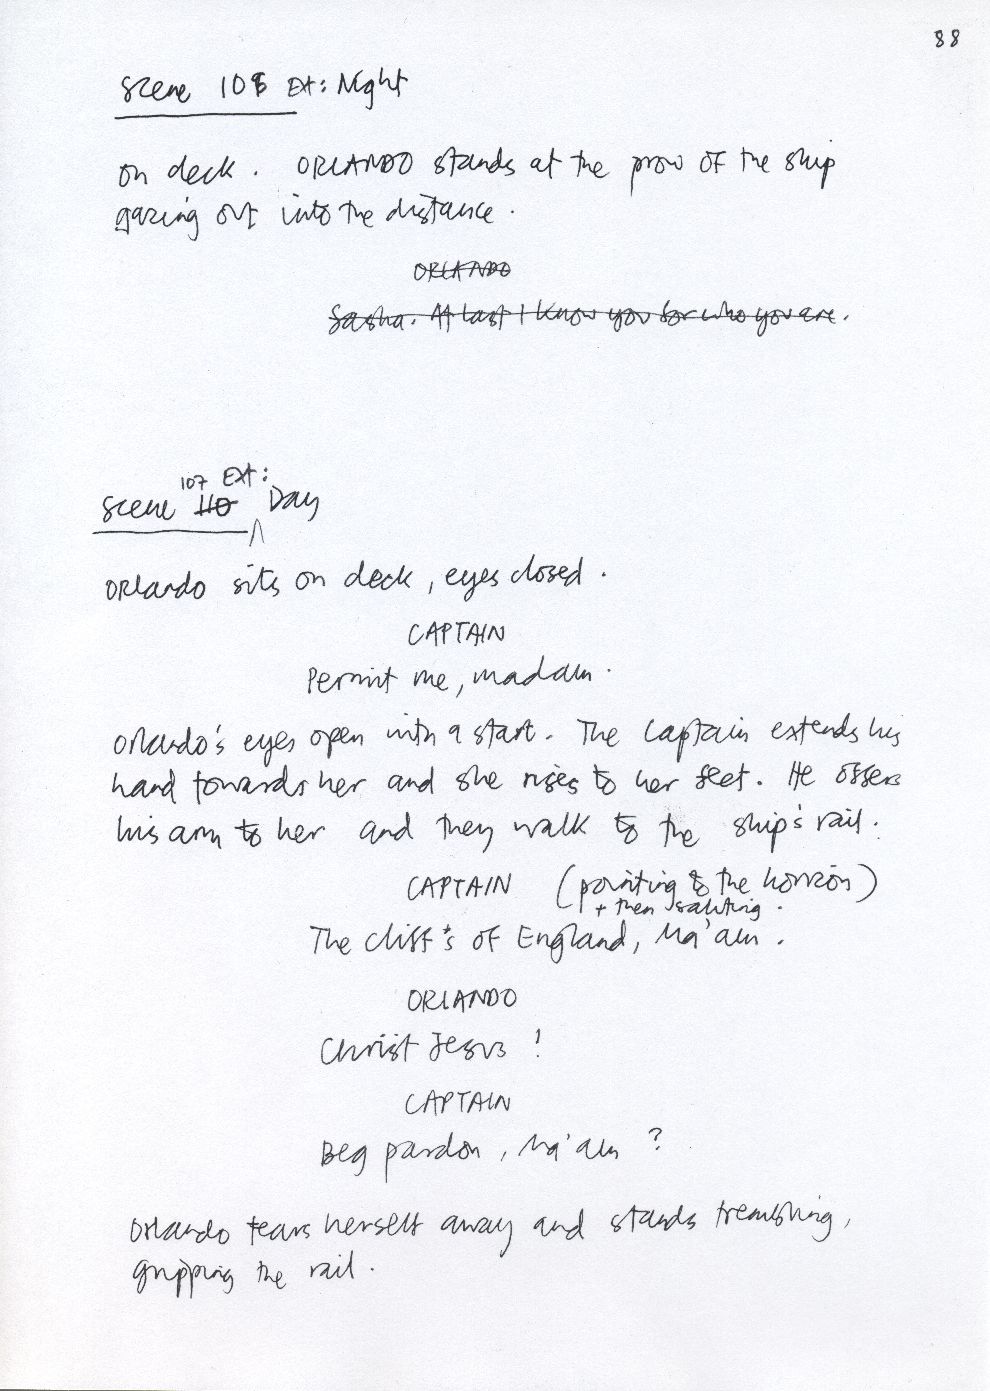 88
Scene 106 Ext: Night
on deck. ORLANDO stands at the prow of the ship
gazing out into the distance.
ORLANDO
Sasha. At last I know you for who you are.
107 Ext:
Scene 110 Day
Orlando sits on deck, eyes closed.
CAPTAIN
Permit me, madam.
Orlando's eyes open with a start. The Captain extends his
hand towards her and she rises to her feet. He offers
his arm to her and they walk to the ship's rail.
CAPTAIN (pointing to the horizon)
+ then saluting.
The cliffs of England, Ma'am.
ORLANDO
Christ Jesus!
CAPTAIN
Beg pardon, Ma'am?
Orlando tears herself away and stands trembling,
gripping the rail.